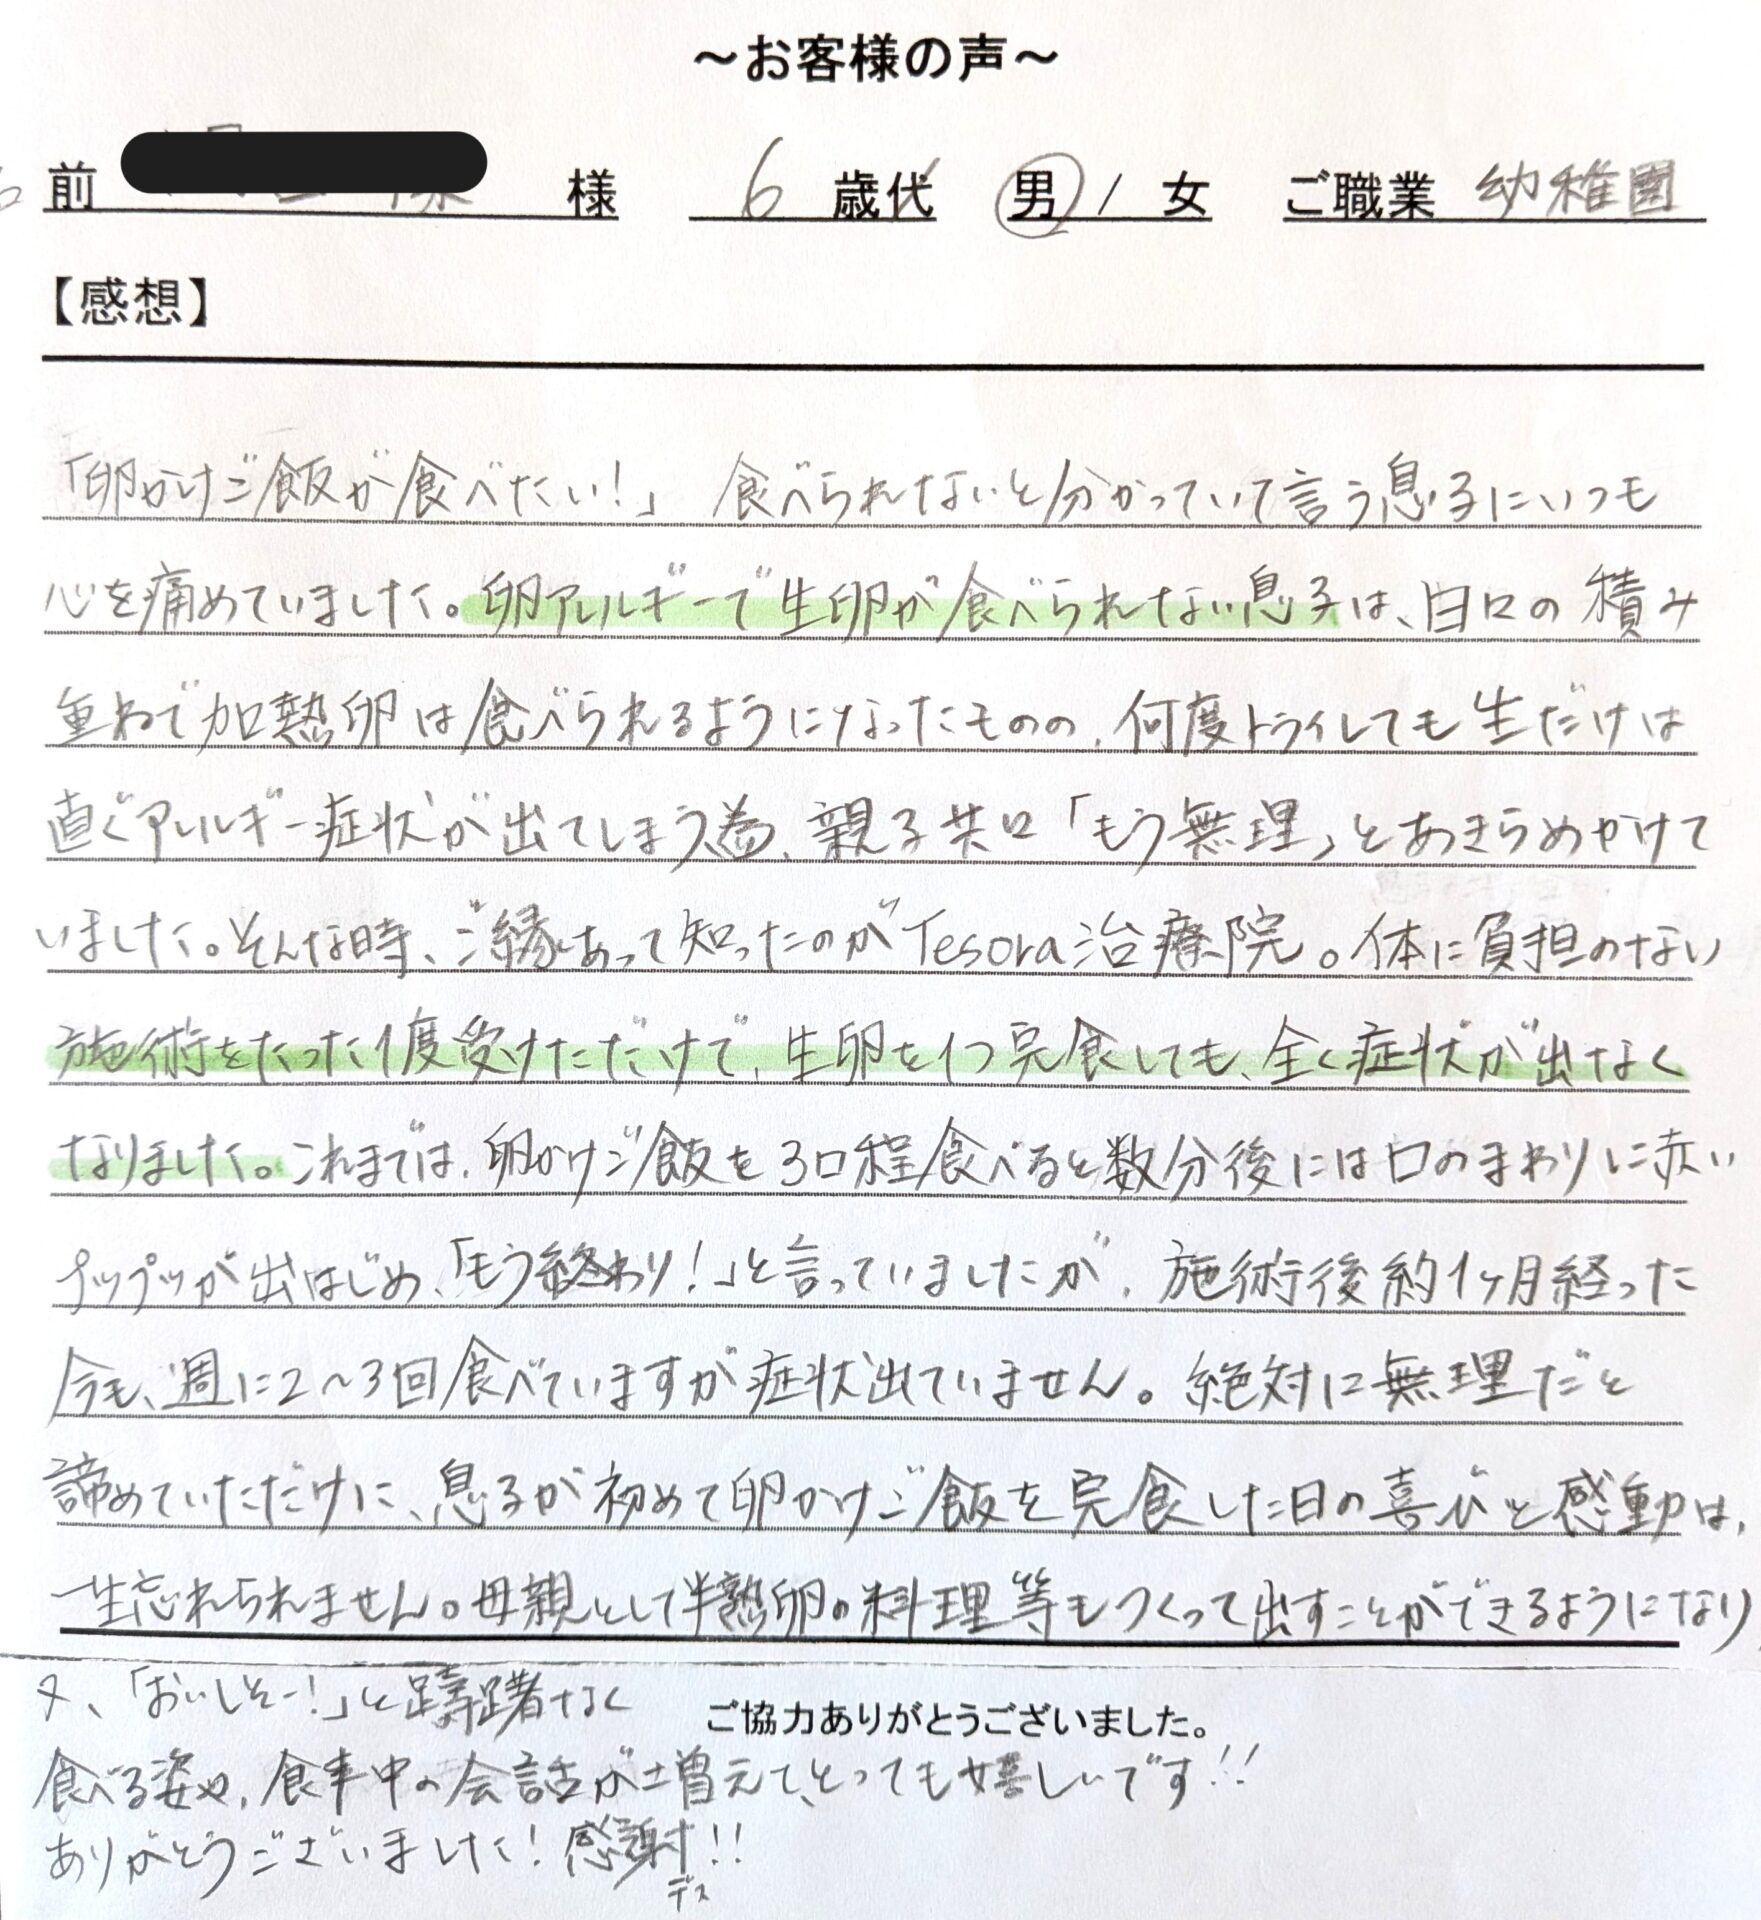 ～お客様の声～
名前 様 6 歳代 男 / 女 ご職業 幼稚園
【感想】
「卵かけご飯が食べたい！」 食べられないと分かっていて言う息子にいつも
心を痛めていました。卵アレルギーで生卵が食べられない息子は、日々の積み
重ねで加熱卵は食べられるようになったものの、何度トライしても生だけは
直ぐアレルギー症状が出てしまう為、親子共々「もう無理」とあきらめかけて
いました。そんな時、ご縁あって知ったのがTesora治療院。体に負担のない
施術をたった1度受けただけで、生卵を1つ完食しても、全く症状が出なく
なりました。これまでは、卵かけご飯を3口程食べると数分後には口のまわりに赤い
プップツが出はじめ、「もう終わり！」と言っていましたが、施術後約1ヶ月経った
今も、週に2～3回食べていますが症状出ていません。絶対に無理だと
諦めていただけに、息子が初めて卵かけご飯を完食した日の喜びと感動は、
一生忘れられません。母親として半熟卵の料理等もつくって出すことができるようになり
又、「おいしそー！」と躊躇なく
ご協力ありがとうございました。
食べる姿や、食事中の会話が増えて、とっても嬉しいです！！
ありがとうございました！感謝！！
デス